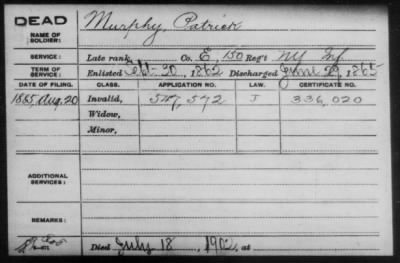 DEAD
NAME OF SOLDIER: Murphy, Patrick
SERVICE: Late rank, Co. E, 150 Reg't NY Inf.
TERM OF SERVICE: Enlisted Sept. 20, 1862 Discharged June 1865
DATE OF FILING. CLASS. APPLICATION NO. LAW. CERTIFICATE NO.
1885, Aug. 20 Invalid, 547,572 J 336,020
Widow,
Minor,
ADDITIONAL SERVICES:
REMARKS:
Died July 18, 190 at